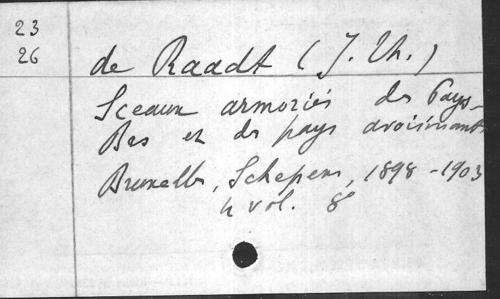 23
26
de Raadt (J. Th.)
Sceaux armoriés des Pays-
Bas et des pays avoisinants
Bruxelles, Schepens, 1898-1903
4 vol. 8°